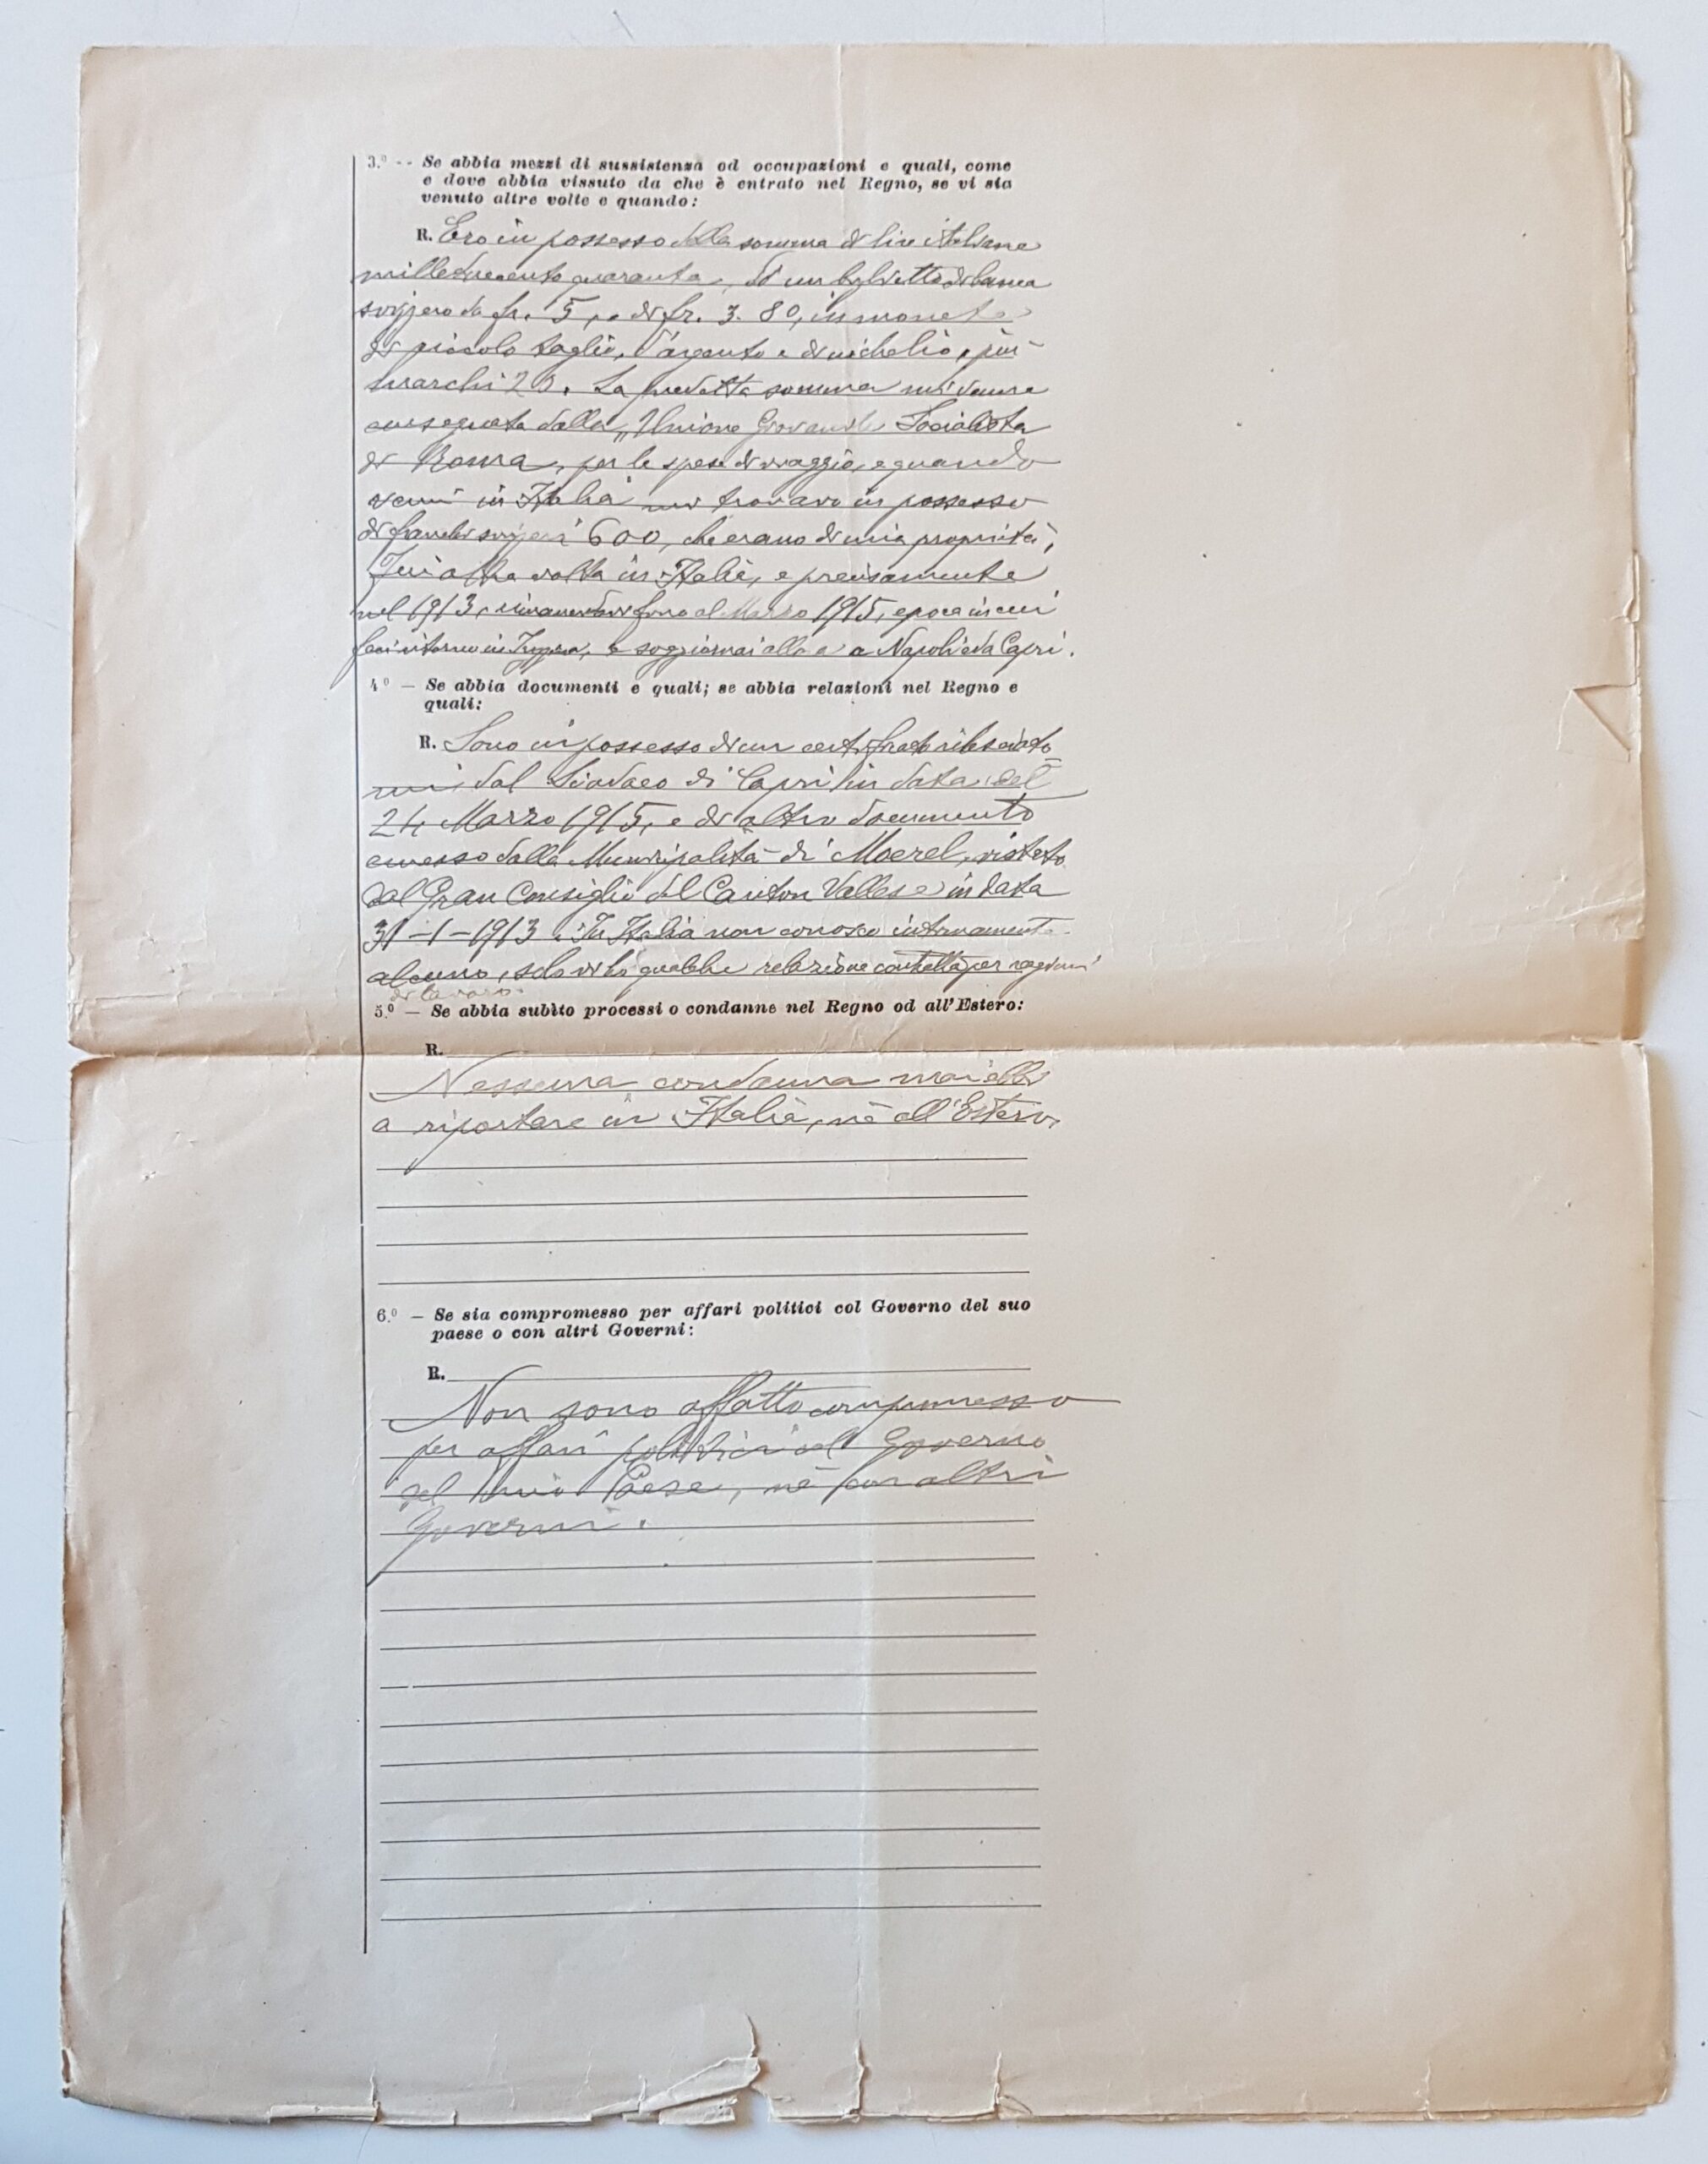 3.º -- Se abbia mezzi di sussistenza od occupazioni e quali, come
e dove abbia vissuto da che è entrato nel Regno, se vi sia
venuto altre volte e quando:
R. Ero in possesso della somma di lire italiane
quaranta, di un biglietto di banca
svizzero da fr. 5, e di fr. 3.80, in moneta
di piccolo taglio, d'argento e di nichelio, più
marchi 20. La predetta somma mi venne
consegnata dalla "Unione Giovanile Socialista
di Roma, per le spese di viaggio, e quando
venni in Italia mi trovavo in possesso
di franchi svizzeri 600, che erano di mia proprietà;
Fui altra volta in Italia, e precisamente
nel 1913, rimanendovi fino al Marzo 1915, epoca in cui
feci ritorno in Isvizzera, e soggiornai allora a Napoli e da Capri.
4º — Se abbia documenti e quali; se abbia relazioni nel Regno e
quali:
R. Sono in possesso di un certificato rilasciato
mi dal Sindaco di Capri in data del
24 Marzo 1915, e di altro documento
emesso dalla Municipalità di Moerel, vistato
dal Gran Consiglio del Canton Vallese in data
31-1-1913. In Italia non conosco intimamente
alcuno, solo vi ho qualche relazione per ragioni
di lavoro.
5.º — Se abbia subìto processi o condanne nel Regno od all'Estero:
R.
Nessuna condanna mai ebbi
a riportare in Italia, nè all'Estero.
6.º — Se sia compromesso per affari politici col Governo del suo
paese o con altri Governi:
R.
Non sono affatto compromesso
per affari politici col Governo
del mio Paese, nè con altri
Governi.